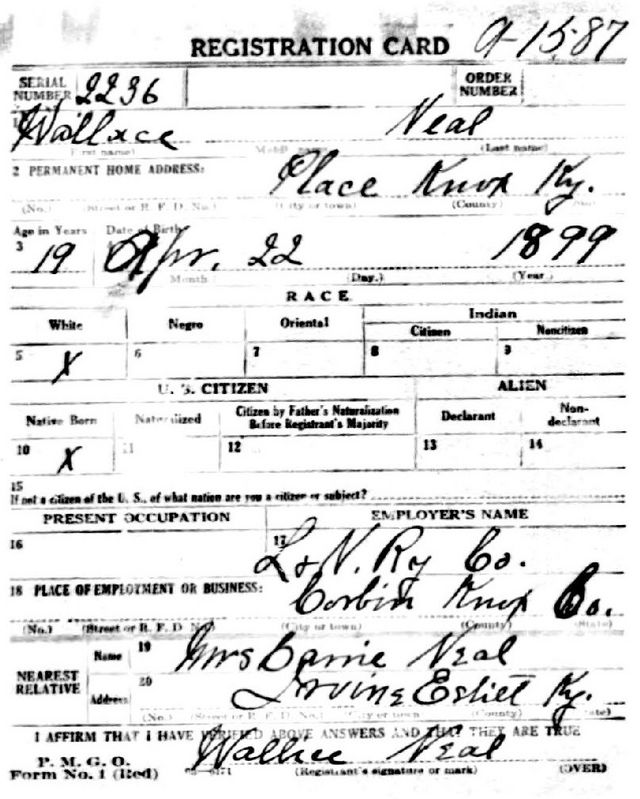 REGISTRATION CARD 9-1587
SERIAL NUMBER 2236 ORDER NUMBER
1 Wallace Neal
(First name) (Middle name) (Last name)
2 PERMANENT HOME ADDRESS: Place Knox Ky.
(No.) (Street or R. F. D. No.) (City or town) (County)
Age in Years Date of Birth
3 19 Apr. 22 1899
Month (Day.) (Year)
RACE
White Negro Oriental Indian
Citizen Noncitizen
5 X 6 7 8 9
U. S. CITIZEN ALIEN
Native Born Naturalized Citizen by Father's Naturalization Before Registrant's Majority Declarant Non-declarant
10 X 11 12 13 14
15
If not a citizen of the U. S., of what nation are you a citizen or subject?
PRESENT OCCUPATION EMPLOYER'S NAME
16 17 L & N. Ry Co.
18 PLACE OF EMPLOYMENT OR BUSINESS: Corbin Knox Co.
(No.) (Street or R. F. D No.) (City or town) (County) (State)
NEAREST RELATIVE
Name 19 Mrs Neal
Address 20 Irvine Ky.
(No.) (Street or R. F. D. No.) (City or town) (County)
I AFFIRM THAT I HAVE VERIFIED ABOVE ANSWERS AND THAT THEY ARE TRUE
P. M. G. O.
Form No. 1 (Red) Wallace Neal
(Registrant's signature or mark) (OVER)